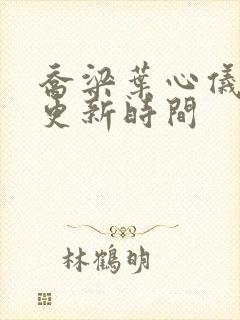 喬梁葉心儀
更新時間
林鶴明